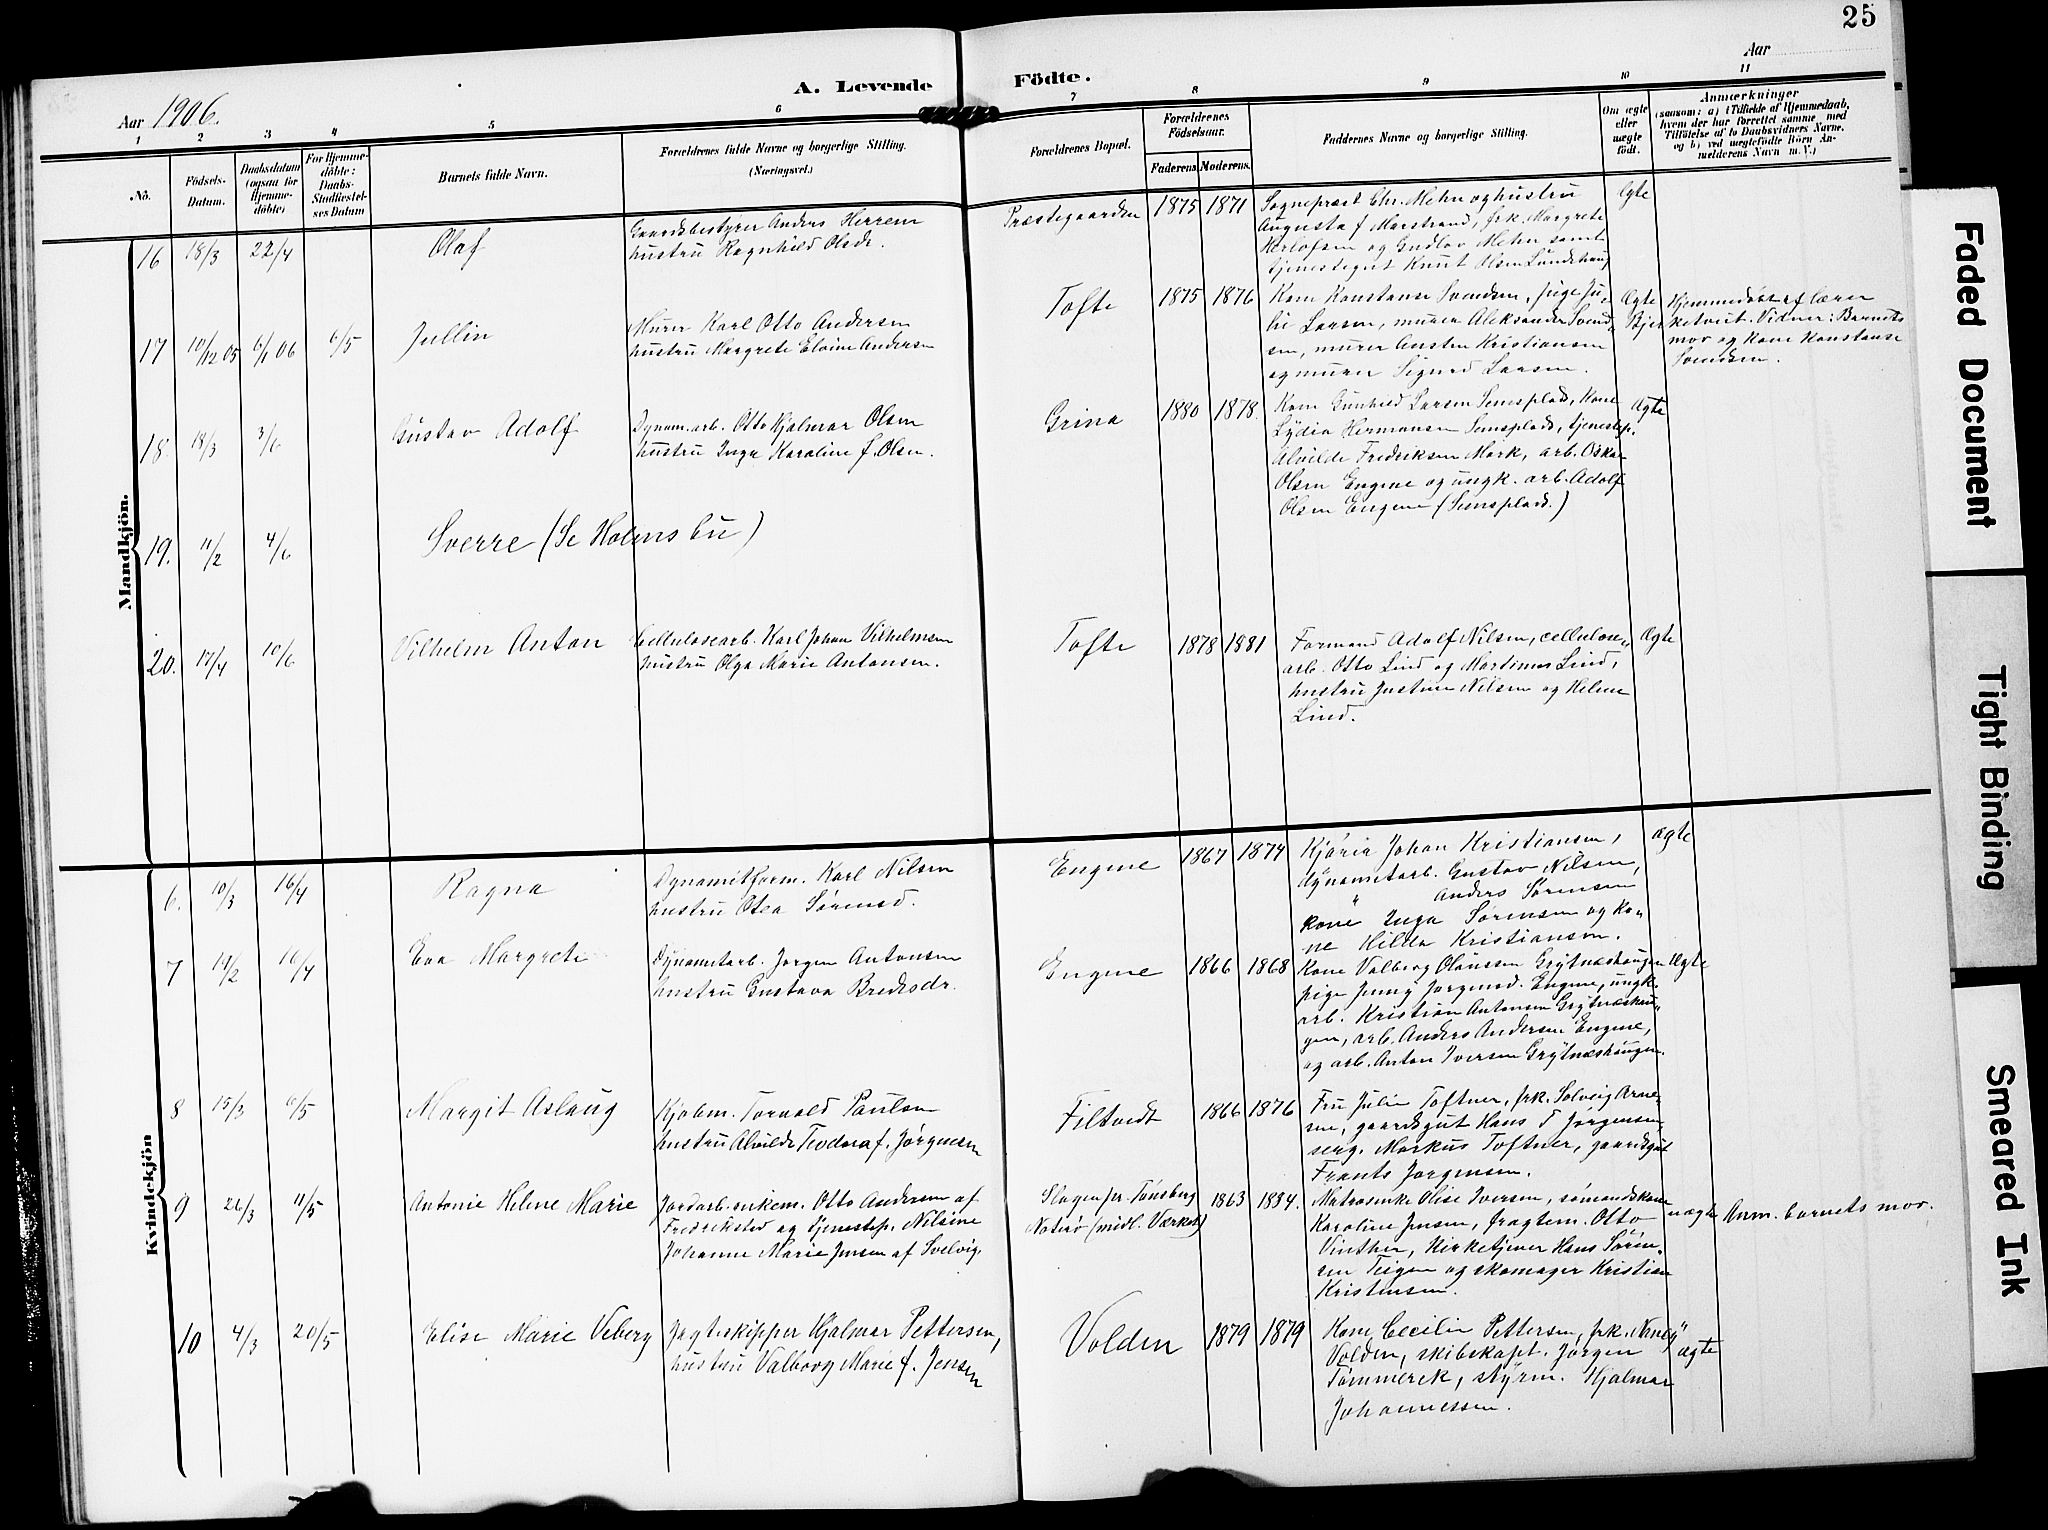 25
Aar 1906.
A. Levende Födte.
Aar
1 2 3 4 5 6 7 8 9 10 11
No.
Födsels-
Datum.
Daabsdatum
(ogsaa for
Hjemme-
döbte)
For Hjemme-
döbte:
Daabs-
Stadfæstel-
ses Datum
Barnets fulde Navn.
Forældrenes fulde Navne og borgerlige Stilling.
(Næringsvei.)
Forældrenes Bopæl.
Forældrenes
Födselsaar.
Faderens Moderens.
Faddernes Navne og borgerlige Stilling.
Om ægte
eller
uægte
født.
Anmærkninger
(saasom: a) i Tilfælde af Hjemmedaab,
hvem der har forrettet samme, med
Tilföielse af to Daabsvidners Navne,
og b) ved uægtefödte Börn An-
melderens Navn m. V.)
Mandkjön.
16 18/3 22/4 Olaf
Gaardsbestyrer Anders Herrem
hustru Ragnhild Olsdr.
Præstegaarden 1875 1871
Sognepræst Chr. Mehn og hustru
Augusta f Marstrand, frk. Margrete
Herlofsen og Gudlov Mehn samt
tjenestegut Knut Olsen Lundshaug
Ægte
17 10/12 05 6/1 06 6/5 Jullin
Murer Karl Otto Andersen
hustru Margrete Eloine Andersen
Tofte 1875 1876
Kone Konstanse Svendsen, pige Ju-
lie Larsen, murer Aleksander Svend-
sen, murer Austen Kristiansen
og murer Sigurd Larsen.
Ægte
Hjemmedøbt af lærer
Vidner: Barnets
mor og Kone Konstanse
Svendsen.
18. 18/3 3/6 Gustav Adolf
Dynam.arb. Otto Hjalmar Olsen
hustru Inga Karoline f. Olsen.
Grina 1880 1878.
Kone Gunhild Larsen Semsplads, Kone
Lydia Hermansen Semsplads, tjenestep.
Alvilde Fredriksen Mork, arb. Oskar
Olsen Engene og ungk. arb. Adolf
Olsen Engene (Semsplads.)
Ægte
19. 11/2 4/6 Sverre (Se Holmsbu)
20. 17/4 10/6 Vilhelm Anton
Cellulosearb. Karl Johan Vilhelmsen
hustru Olga Marie Antonsen.
Tofte 1878 1881
Formand Adolf Nilsen, cellulose-
arb. Otto Lind og Martinus Lind,
hustru Justine Nilsen og Helene
Lind.
Ægte
Kvindekjön
6. 10/3 16/4 Ragna
Dynamitform. Karl Nilsen
hustru Otea Sørensd.
Engene 1867 1874
Johan Kristiansen,
dynamitarb. Gustav Nilsen,
" Anders Sørensen
kone Inga Sørensen og ko-
ne Hilda Kristiansen.
ægte
7 19/2 16/4 Eva Margrete
Dynamitarb. Jørgen Antonsen
hustru Gustava Bredesdr.
Engene 1866 1868
Kone Valborg Olaussen Grytnæshaugen
pige Jenny Jørgensd. Engene, ungk.
arb. Kristian Antonsen Grytnæshau-
gen, arb. Anders Andersen Engene,
og arb. Anton Iversen Grytnæshaugen.
Ægte
8 15/3 6/5 Margit Aslaug
Kjøbm. Torvald Paulsen
hustru Alvilde Teodora f. Jørgensen
Filtvedt 1866 1876
Fru Julie Toftner, frk. Solveig Arne-
sen, gaardsgut Hans T Jørgensen
serg. Markus Toftner, gaardsgut
Frants Jørgensen.
9 26/3 11/5 Antonie Helene Marie
Jordarb. enkem. Otto Andersen af
Fredrikstad og tjenestep. Nilsine
Johanne Marie Jensen af Svelvig.
Slagen pr. Tønsberg
Nøterø (midl. Værket)
1863 1884.
Matrosenke Olise Iversen, sømandskone
Karoline Jensen, fragtem. Otto
Vinther, Kirketjener Hans Søren-
sen Teigen og skomager Kristian
Kristensen.
uægte
Anm. barnets mor.
10 4/3 20/5 Elise Marie Veberg
Jagteskipper Hjalmar Pettersen,
hustru Valborg Marie f. Jensen
Volden 1879 1879
Kone Cecilie Pettersen, frk. Nancy
Volden, skibskapt. Jørgen
Tømmerek, styrm. Hjalmar
Johannessen.
ægte
Faded Document
Tight Binding
Smeared Ink